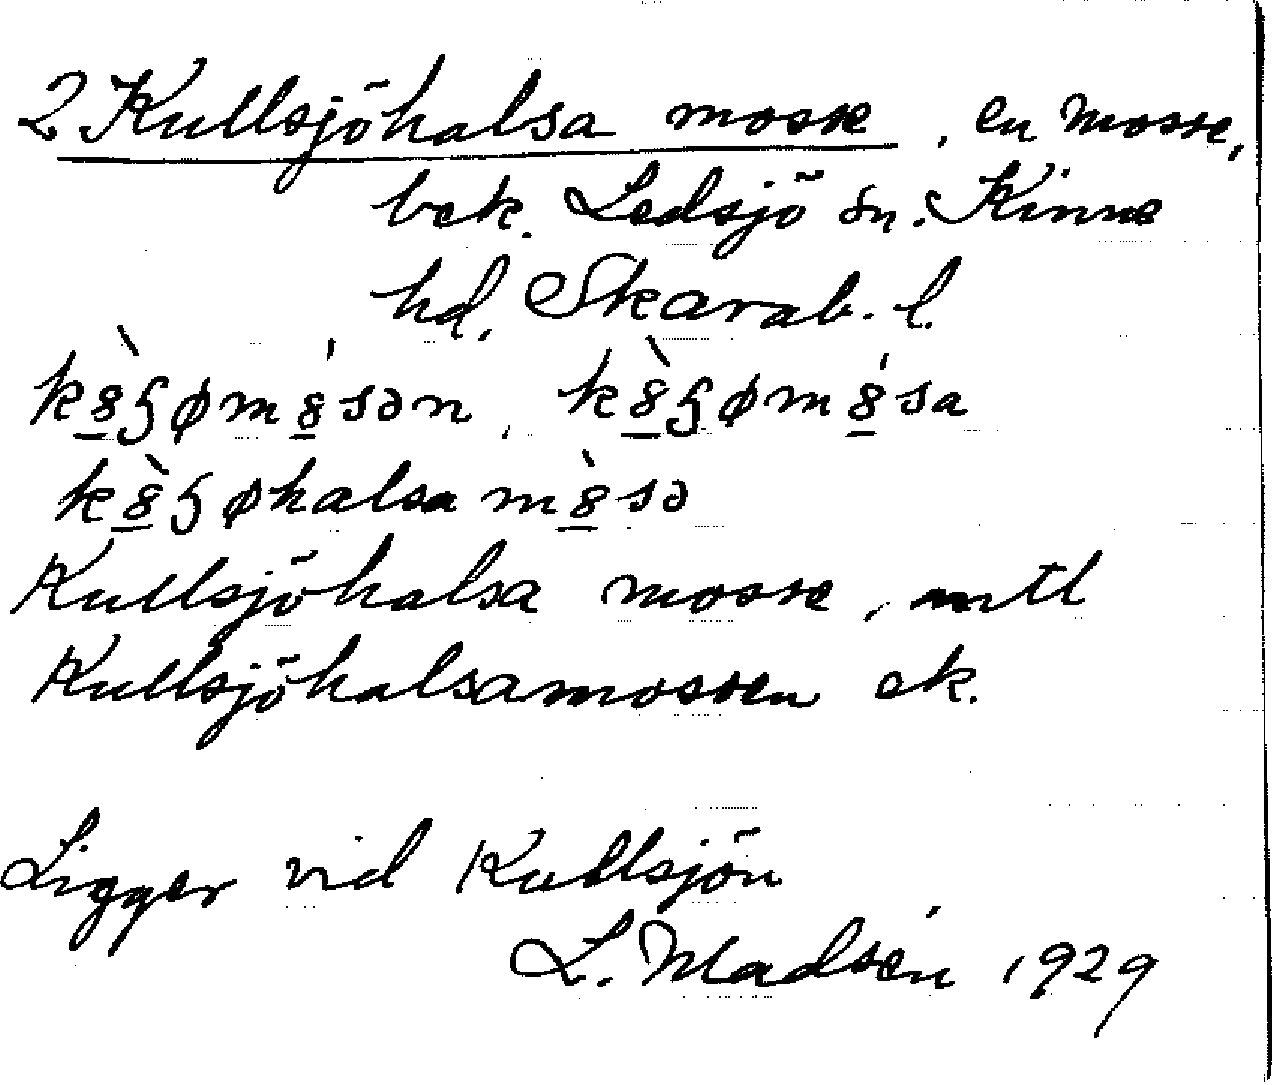 2 Kullsjöhalsa mosse, en mosse,
bek. Ledsjö sn. Kinne
hd, Skarab. l.
k8̲̀ʂøm8̲́sən, k8̲̀ʂøm8̲́sa
k8̲̀ʂøhalsa m8̲̀sə
Kullsjöhalsa mosse, mtl
Kullsjöhalsamossen ek.
Ligger vid Kullsjön
L. Madsén 1929